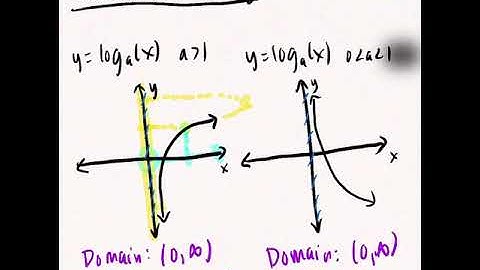 y=logₐ(x) a>1
y=logₐ(x) 0<a<1
y
y
x
x
Domain: (0,∞)
Domain: (0,∞)